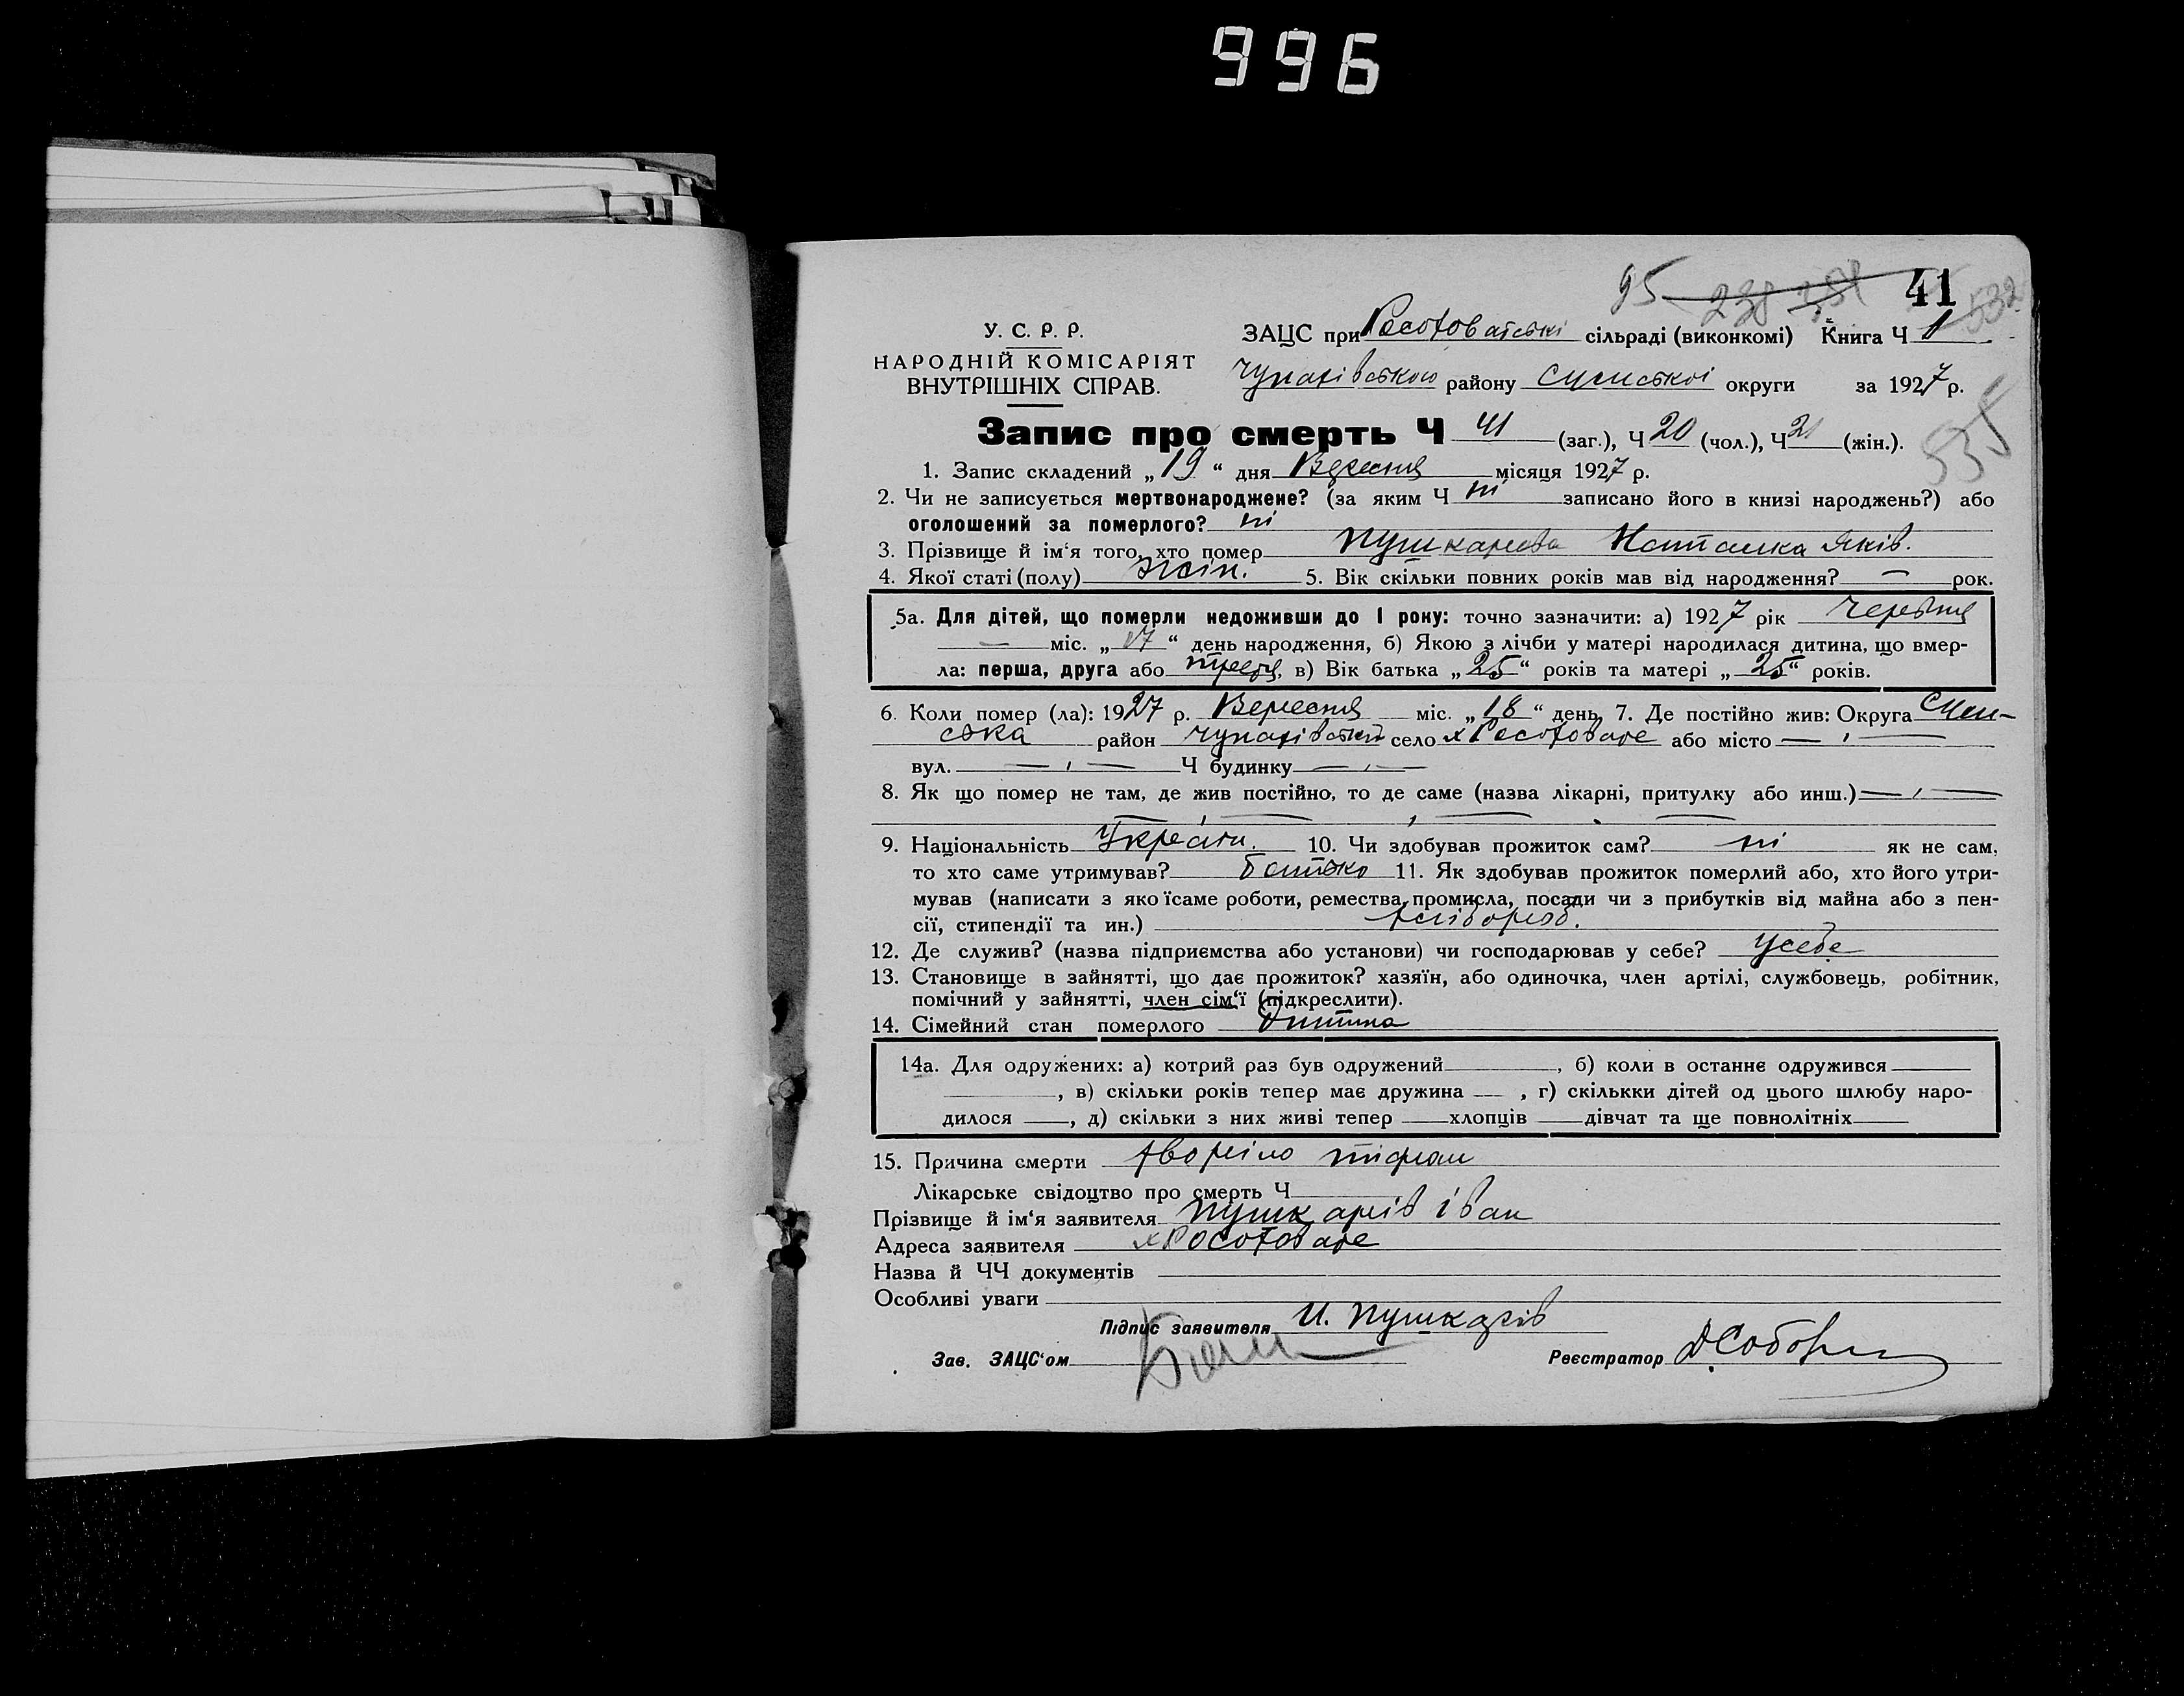 996
95 238 41 532
У. С. Р. Р.
НАРОДНІЙ КОМІСАРІЯТ
ВНУТРІШНІХ СПРАВ.
ЗАЦС при сільраді (виконкомі) Книга Ч 1
Чупахівського району Сумської округи за 1927 р.
535
Запис про смерть Ч 41 (заг.), Ч 20 (чол.), Ч 21 (жін.).
1. Запис складений „19“ дня Вересня місяця 1927 р.
2. Чи не записується мертвонароджене? (за яким Ч ні записано його в книзі народжень?) або
оголошений за померлого? ні
3. Прізвище й ім‘я того, хто помер Пушкарьова Наталка Яків.
4. Якої статі (полу) жін. 5. Вік скільки повних років мав від народження? — рок.
5а. Для дітей, що померли недоживши до 1 року: точно зазначити: а) 1927 рік Червня
— міс. „17“ день народження, б) Якою з лічби у матері народилася дитина, що вмер-
ла: перша, друга або третя, в) Вік батька „25“ років та матері „25“ років.
6. Коли помер (ла): 1927 р. Вересня міс. „18“ день 7. Де постійно жив: Округа Сум-
ська район Чупахівський село або місто —
вул. — Ч будинку —
8. Як що помер не там, де жив постійно, то де саме (назва лікарні, притулку або инш.) —
9. Національність Україн. 10. Чи здобував прожиток сам? ні як не сам,
то хто саме утримував? батько 11. Як здобував прожиток померлий або, хто його утри-
мував (написати з яко їсаме роботи, ремества, промисла, посади чи з прибутків від майна або з пен-
сії, стипендії та ин.) хлібороб.
12. Де служив? (назва підприємства або установи) чи господарював у себе? усебе
13. Становище в зайнятті, що дає прожиток? хазяїн, або одиночка, член артілі, службовець, робітник,
помічний у зайнятті, член сім‘ї (підкреслити).
14. Сімейний стан померлого Дитина
14а. Для одружених: а) котрий раз був одружений , б) коли в останнє одружився
, в) скільки років тепер має дружина , г) скількки дітей од цього шлюбу наро-
дилося , д) скільки з них живі тепер хлопців дівчат та ще повнолітніх
15. Причина смерти хворіло
Лікарське свідоцтво про смерть Ч
Прізвище й ім‘я заявителя Пушкарів Іван
Адреса заявителя
Назва й ЧЧ документів
Особливі уваги
Підпис заявителя И. Пушкарів
Зав. ЗАЦС‘ом
Реєстратор